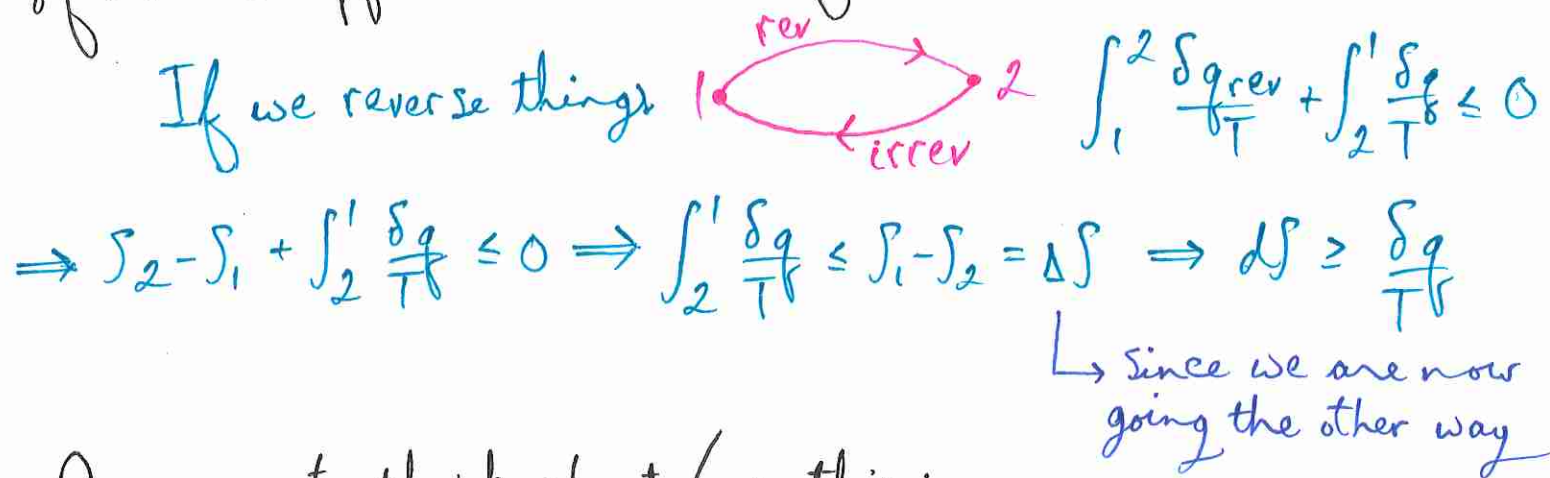 If we reverse things 1 rev 2 irrev ∫₁² δq_rev/T + ∫₂¹ δq/T ≤ 0
⇒ S₂-S₁ + ∫₂¹ δq/T ≤ 0 ⇒ ∫₂¹ δq/T ≤ S₁-S₂ = ΔS ⇒ dS ≥ δq/T
↳ Since we are now
going the other way